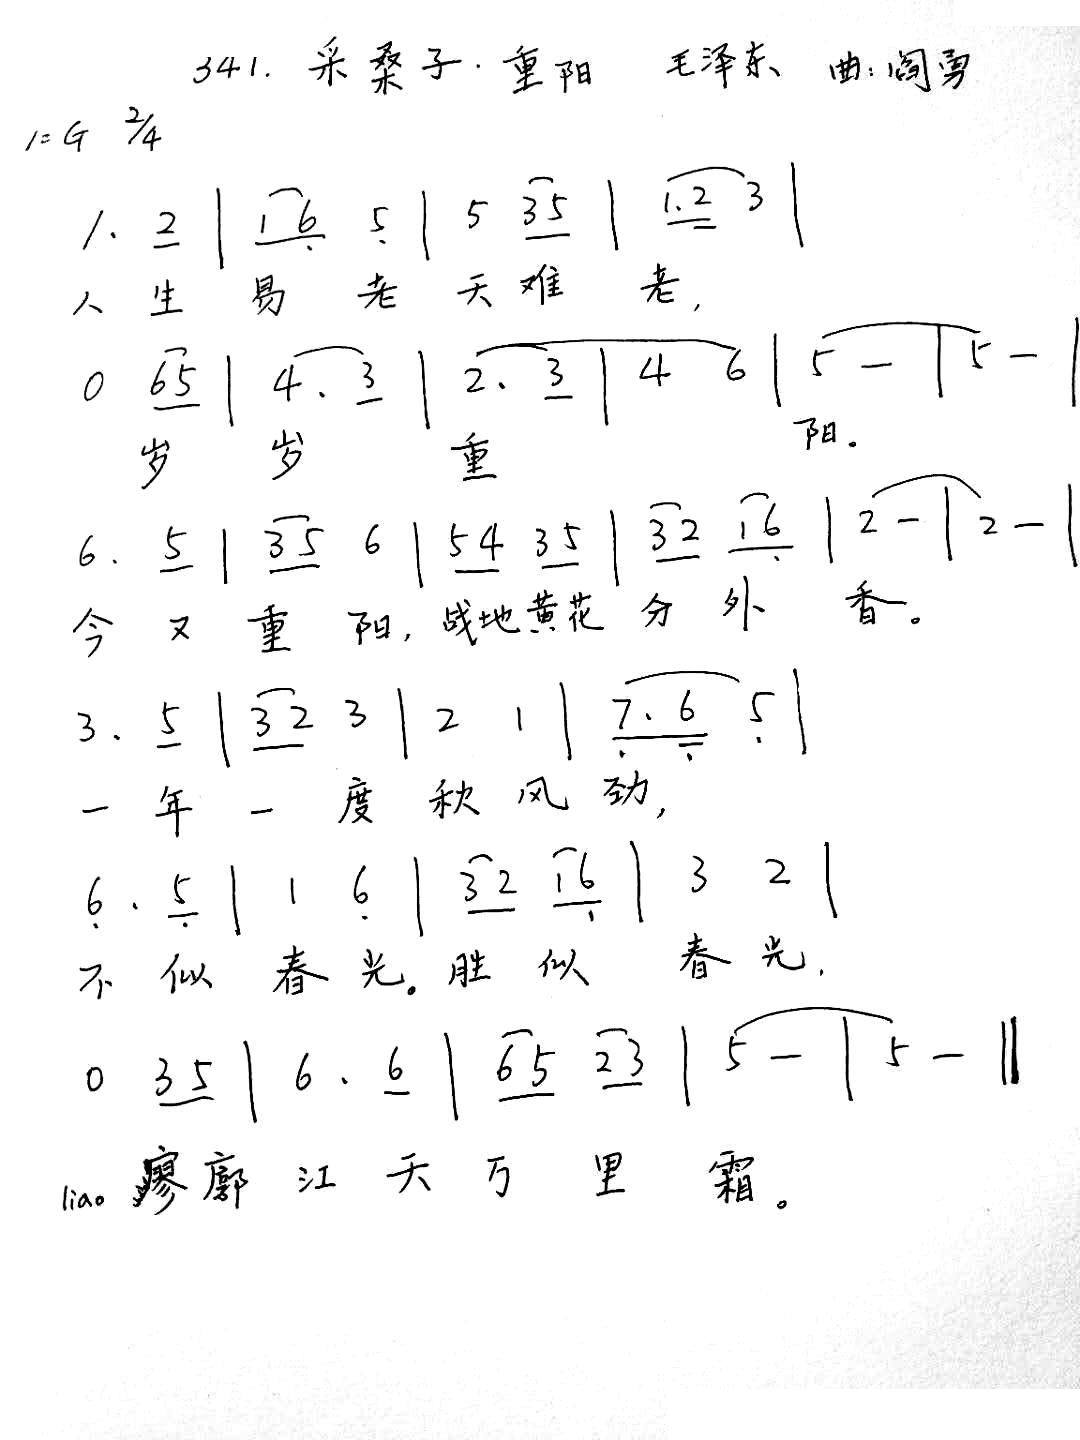 341. 采桑子·重阳 毛泽东 曲:阎勇
1=G 2/4
1. 2 | 1 6 5 | 5 3 5 | 1. 2 3 |
人 生 易 老 天 难 老,
0 6 5 | 4 . 3 | 2 . 3 | 4 6 | 5 — | 5 — |
岁 岁 重 阳。
6 . 5 | 3 5 6 | 5 4 3 5 | 3 2 1 6 | 2 — | 2 — |
今 又 重 阳, 战地黄花 分 外 香。
3 . 5 | 3 2 3 | 2 1 | 7 . 6 5 |
一 年 一 度 秋 风 劲,
6 . 5 | 1 6 | 3 2 1 6 | 3 2 |
不 似 春 光。胜 似 春 光,
0 3 5 | 6 . 6 | 6 5 2 3 | 5 — | 5 — ‖
liao 廖 廓 江 天 万 里 霜。